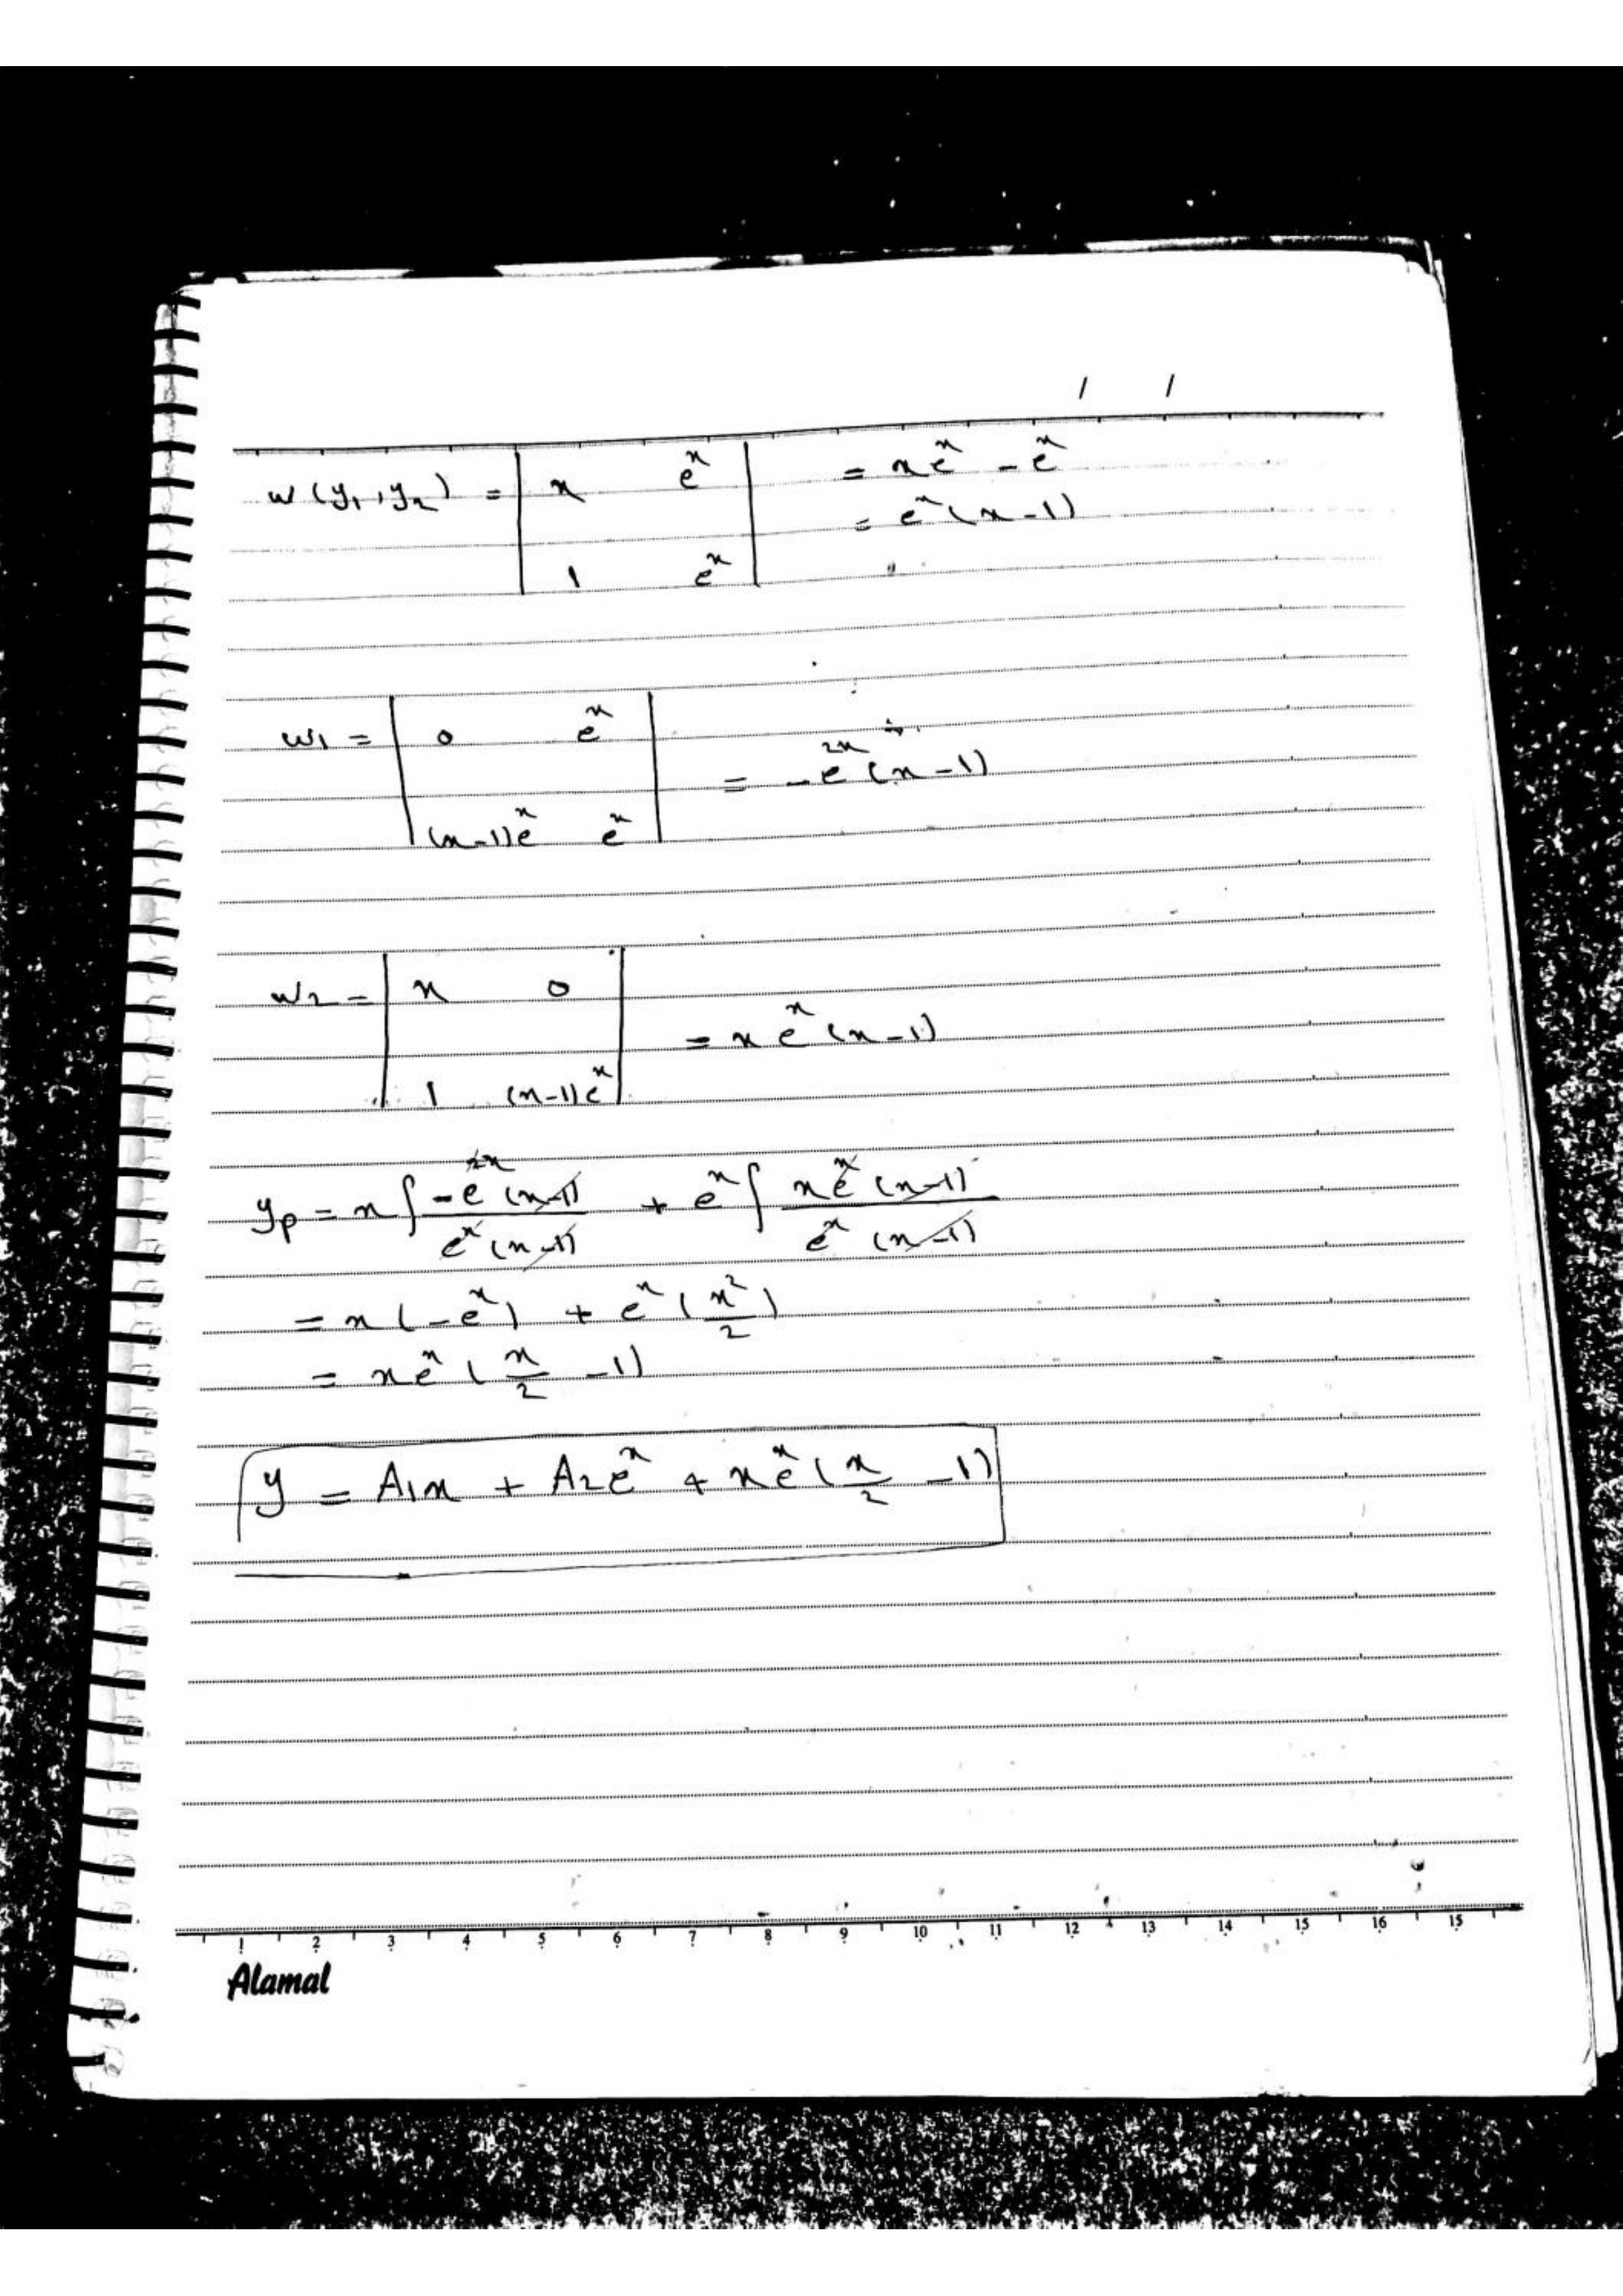 / /
w(y₁,y₂) = | x eˣ | = xeˣ - eˣ
= eˣ(x-1)
| 1 eˣ |
w₁ = | 0 eˣ |
= -e²ˣ(x-1)
| (x-1)eˣ eˣ |
w₂ = | x 0 |
= xeˣ(x-1)
| 1 (x-1)eˣ |
yp = x ∫ -e²ˣ(x-1) / eˣ(x-1) + eˣ ∫ xeˣ(x-1) / eˣ(x-1)
= x(-eˣ) + eˣ(x²/2)
= xeˣ(x/2 - 1)
y = A₁x + A₂eˣ + xeˣ(x/2 - 1)
1 2 3 4 5 6 7 8 9 10 11 12 13 14 15 16 15
Alamal